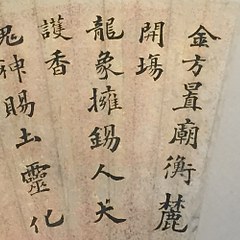 金方置廟衡麓
開塲
龍象擁錫人天
護香
鬼神賜土靈化